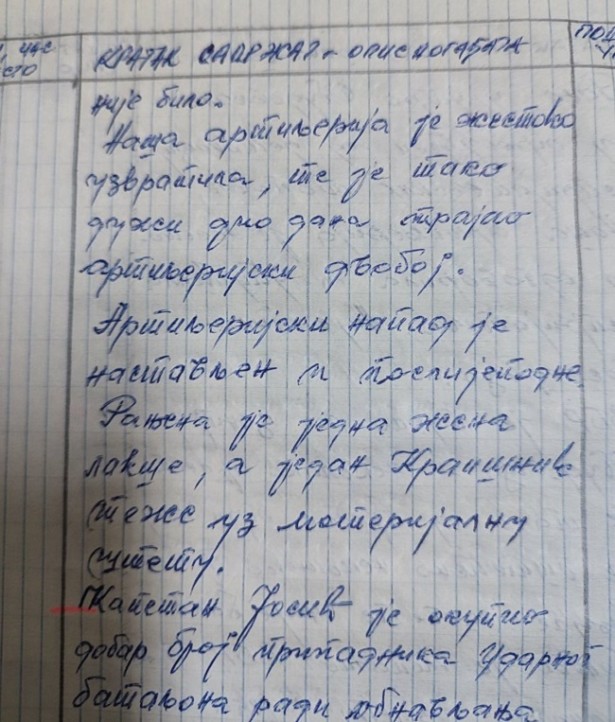 час
КРАТАК САДРЖАЈ - ОПИС ДОГАЂАЈА
није било.
Наша артиљерија је жестоко
узвратила, те је тако
дужи дио дана трајао
артиљеријски двобој.
Артиљеријски напад је
настављен и послијеподне.
Рањена је једна жена
лакше, а један Крајишник
теже уз материјалну
штету.
Капетан Јосић је окупио
добар број припадника Ударног
батаљона ради обнављања